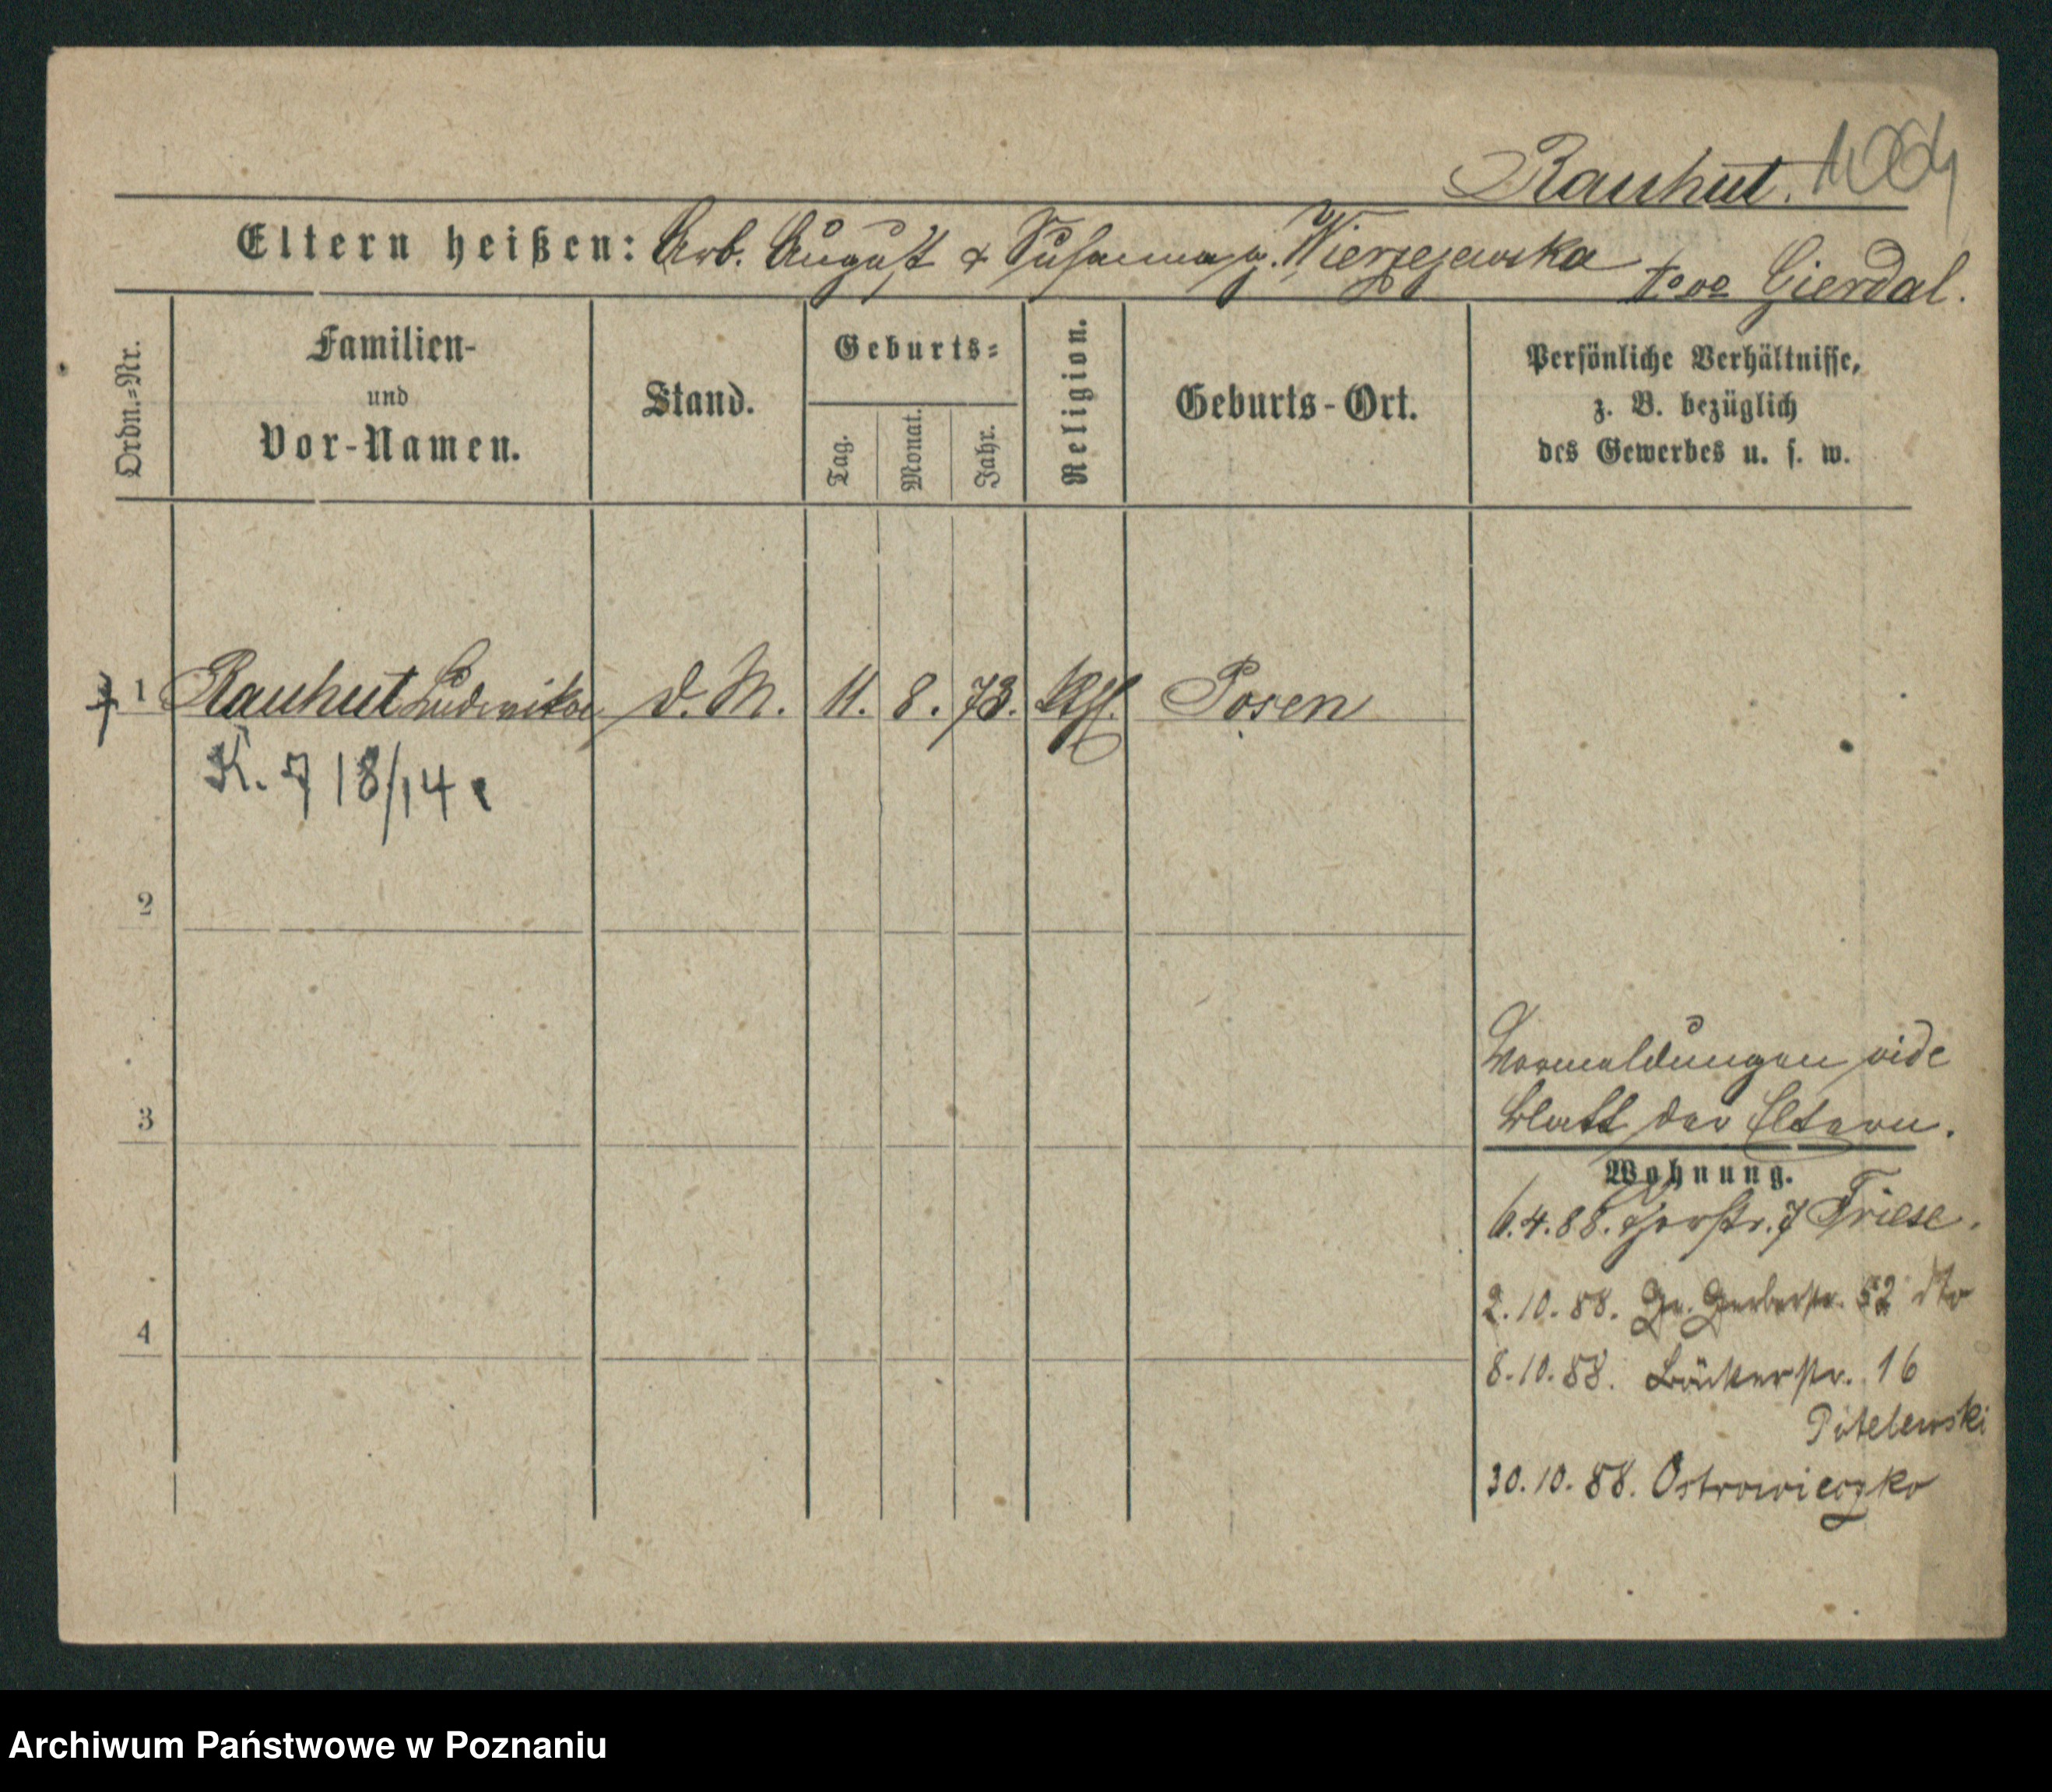 Rauhut. 1004
Eltern heißen: Arb. August & Susanna g. Wierzejewska Gierdal.
Ordn.-Nr.
Familien-
und
Vor-Namen.
Stand.
Geburts-
Tag.
Monat.
Jahr.
Religion.
Geburts-Ort.
Persönliche Verhältnisse,
z. B. bezüglich
des Gewerbes u. s. w.
† 1 Rauhut Ludwika d. M. 11. 8. 73. Posen
K. 7 18/14
2
3
4
Vormeldungen vide
Blatt der Eltern.
Wohnung.
6.4.88. 7 Friese.
2.10.88. Gr. Gerberstr. 52 dto
8.10.88. Bäckerstr. 16
30.10.88. Ostrowieczko
Archiwum Państwowe w Poznaniu